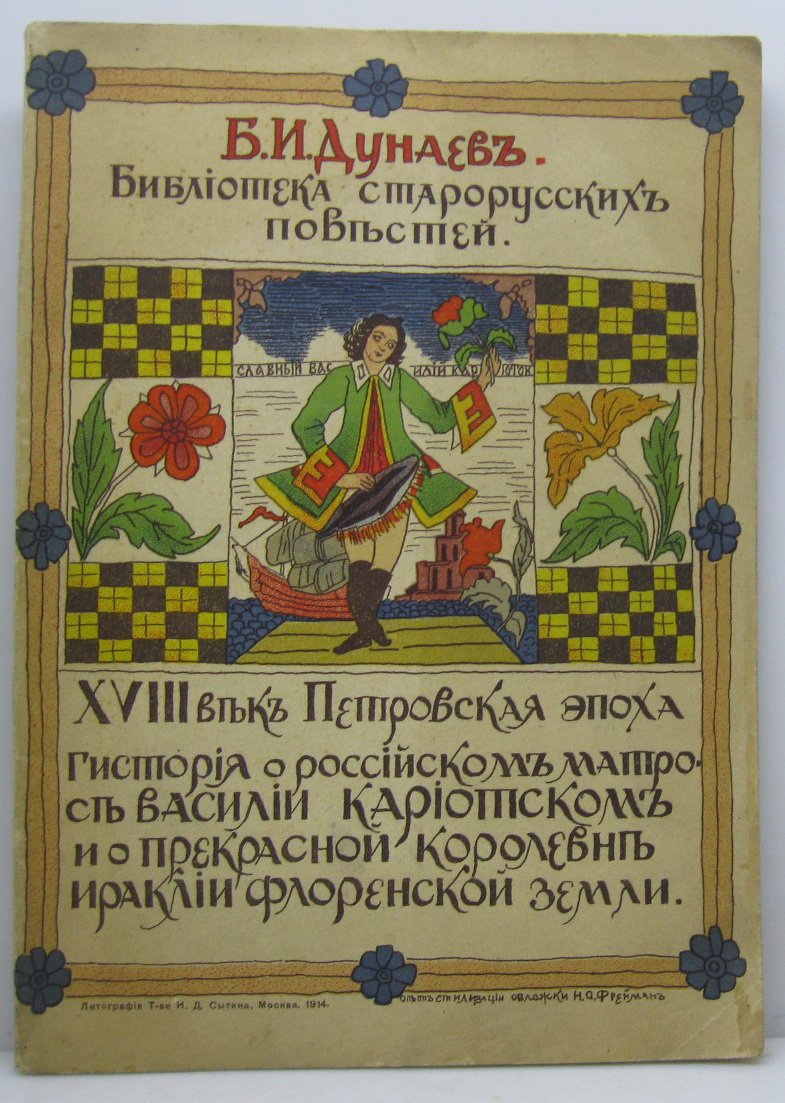 Б.И.Дунаевъ.
Библіотека старорусскихъ
повѣстей.
СЛАВНЫЙ ВАСИЛІЙ КАРІОТСК
XVIII вѣкъ Петровская эпоха
Гисторія о россійскомъ матро-
сѣ Василіи Каріотскомъ
и о прекрасной королевнѣ
Иракліи Флоренской земли.
Литографія Т-ва И. Д. Сытина. Москва. 1914.
Опытъ стилизаціи обложки Н.О.Фрейманъ